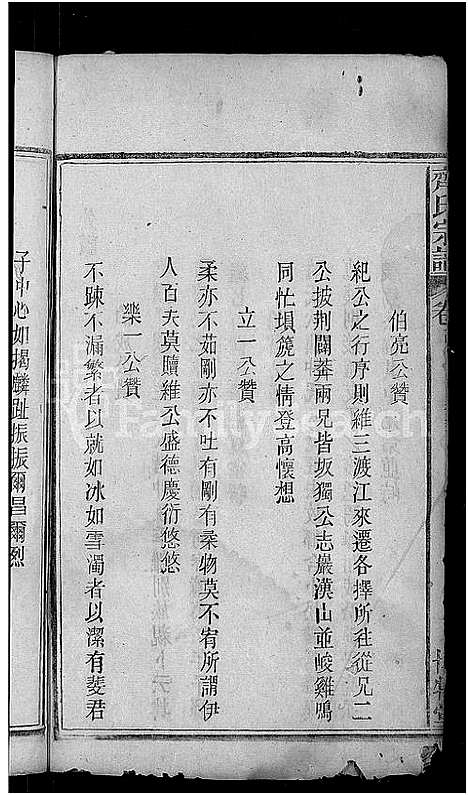 齊氏宗譜
卷
伯亮公贊
紀公之行序則維三渡江來遷各擇所往從兄二
公披荆闢莽兩兄皆坂獨公志巖漢山並峻雞鳴
同忙塤篪之情登高懷想
立一公贊
柔亦不茹剛亦不吐有剛有柔物莫不宥所謂伊
人百夫莫贖維公盛德慶衍悠悠
樂一公贊
不踈不漏繁者以就如冰如雪濁者以潔有斐君
子中心如揭麟趾振振爾昌爾烈
FamilySearch